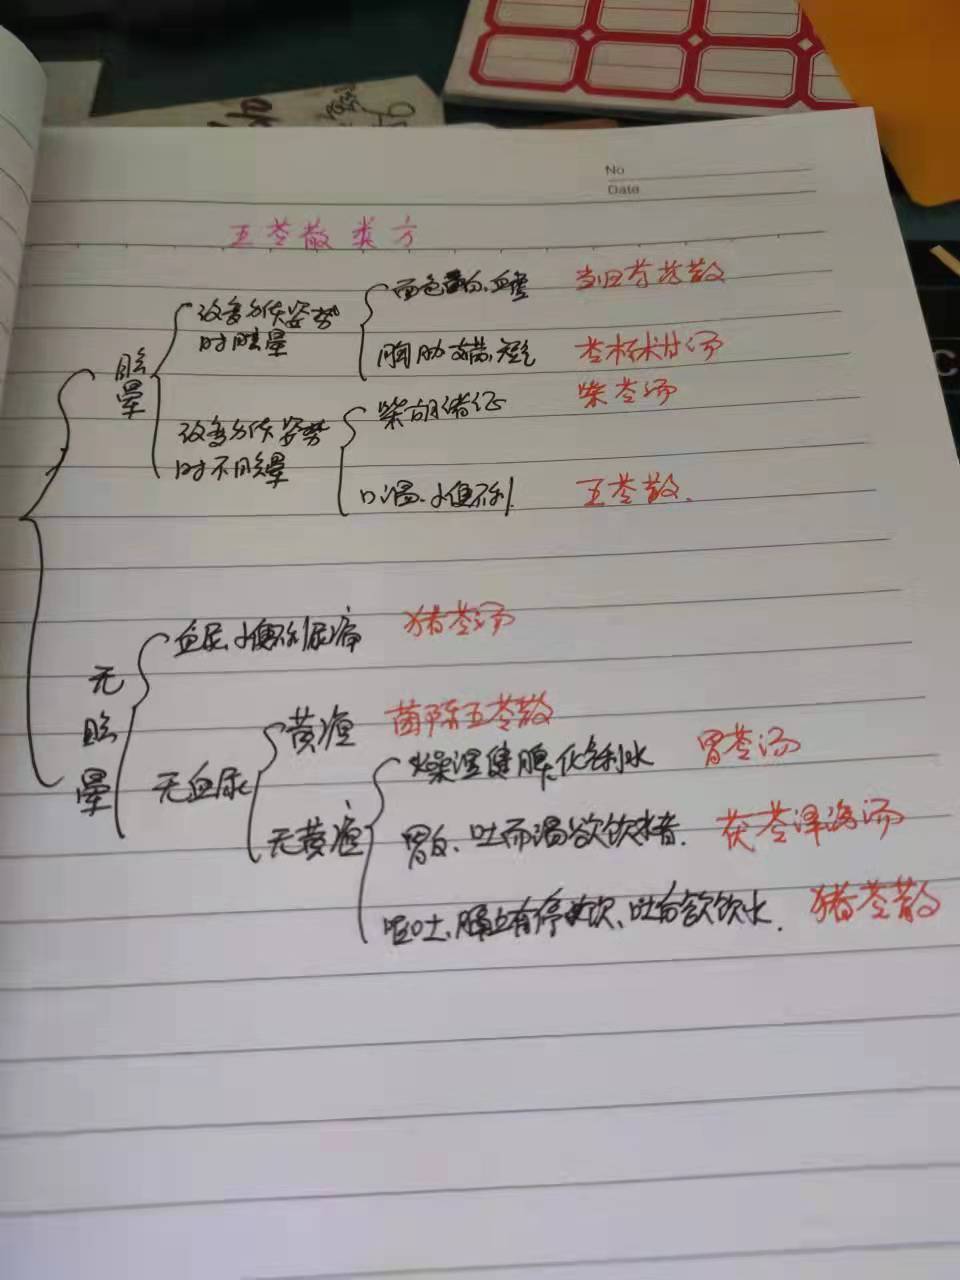 No
Date
五苓散类方
眩晕
改变身体姿势
时眩晕
面色白、血虚
当归芍药散
胸胁支满、短气
苓桂术甘汤
改变身体姿势
时不眩晕
柴胡诸征
柴苓汤
口渴、小便不利
五苓散.
无眩晕
血尿、小便不利尿痛
猪苓汤
无血尿
黄疸
茵陈五苓散
无黄疸
燥湿健脾、化气利水
胃苓汤
胃反、吐而渴欲饮水者.
茯苓泽泻汤
呕吐、膈上有停饮、吐后欲饮水.
猪苓散
C